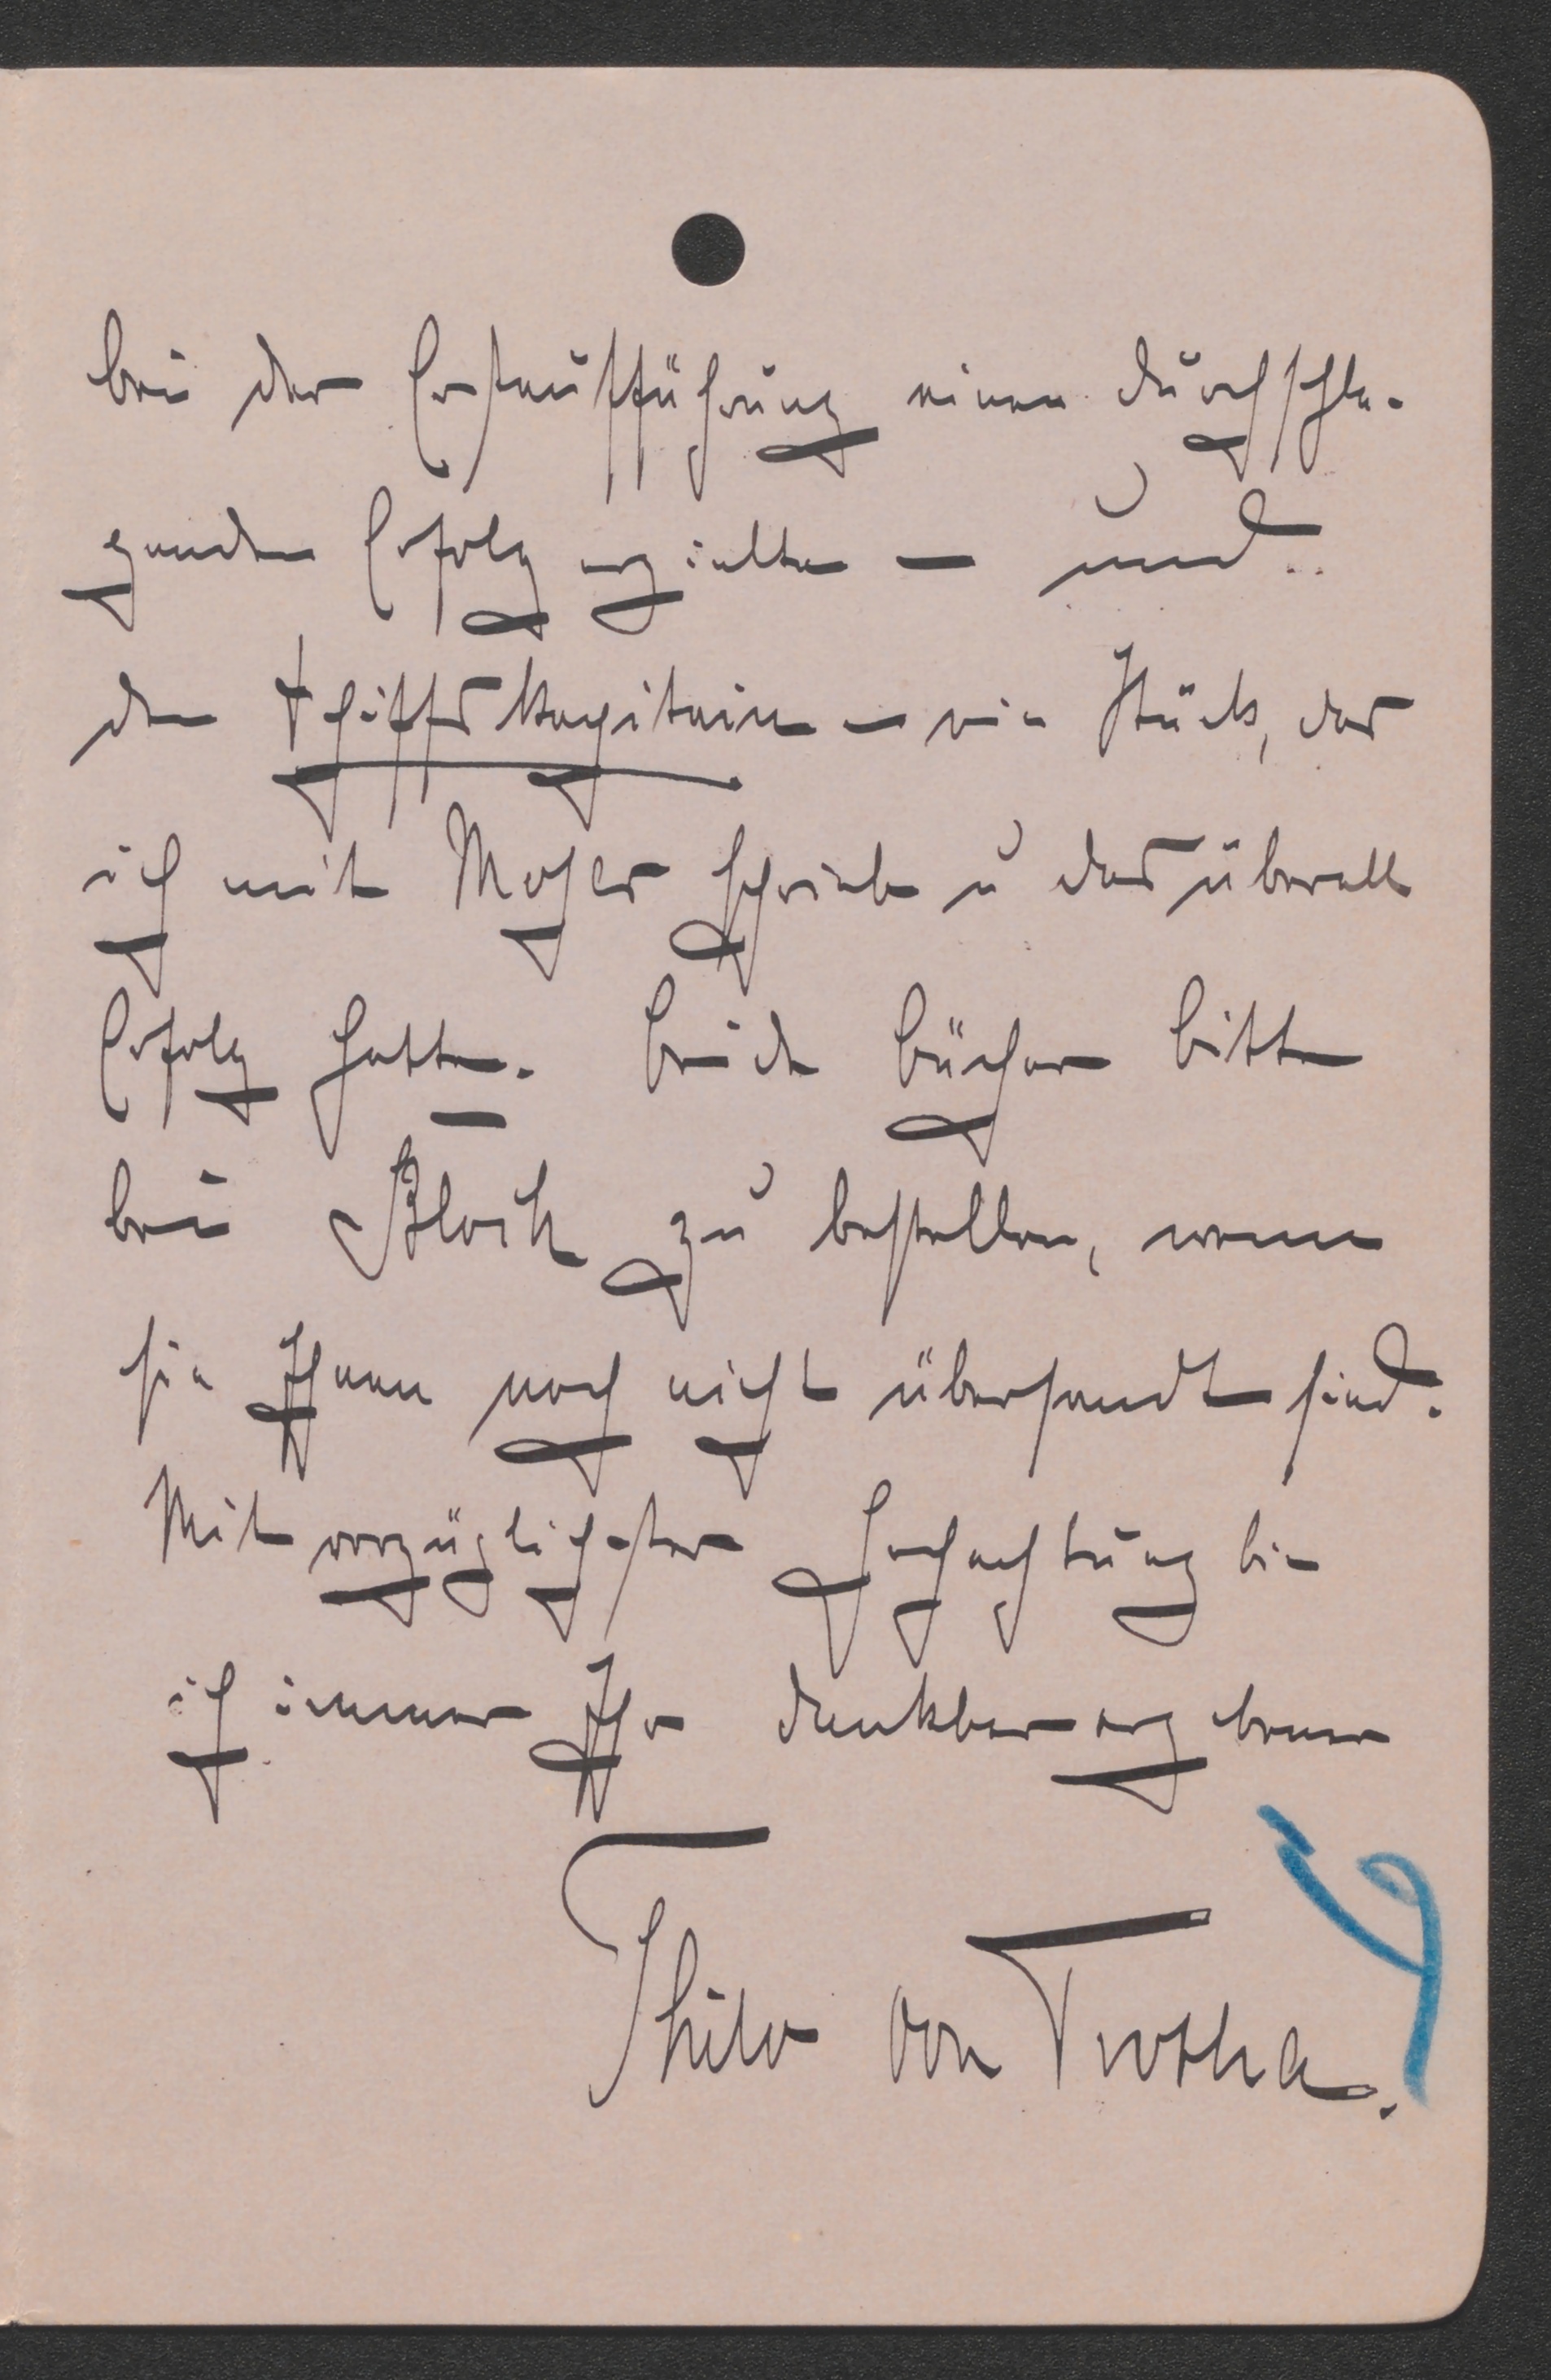 bei der Erstaufführung einen durchschla-
genden Erfolg erzielte — und
den Schiffskapitain — ein Stück, das
ich mit Moser schrieb u das überall
Erfolg hatte. beide bücher bitte
bei Bloch zu bestellen, wenn
sie Ihnen noch nicht übersandt sind.
Mit vorzüglichster Hochachtung bin
ich immer Ihr dankbar ergebener
Thilo von Trotha.